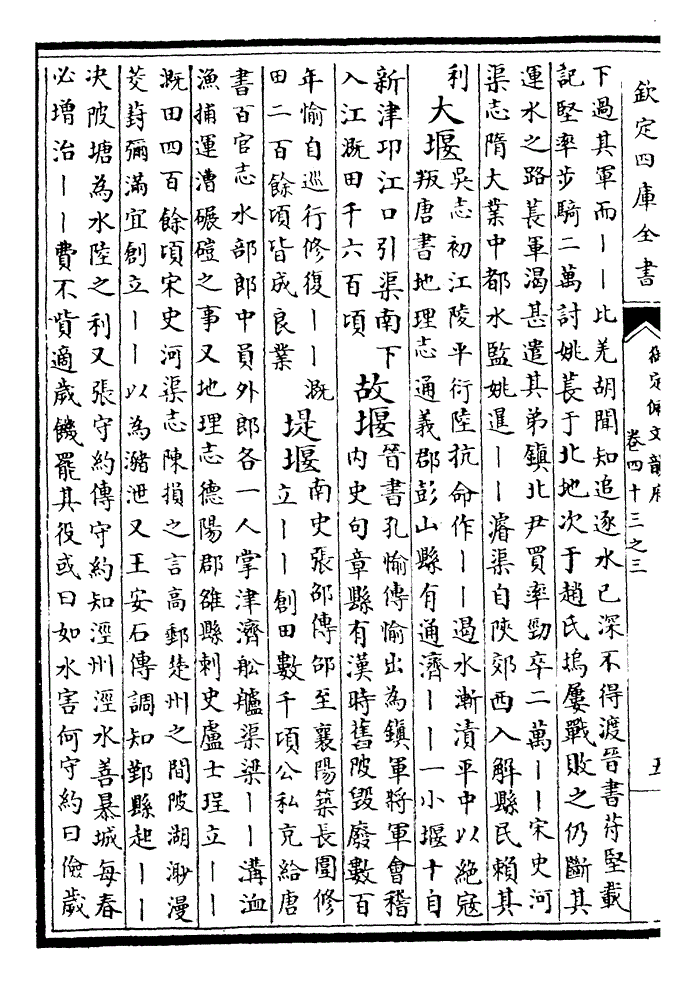 欽定四庫全書
御定佩文韻府
卷四十三之三
五
下過其軍而||比羌胡聞知追逐水已深不得渡晉書苻堅載
記堅率步騎二萬討姚萇于北地次于趙氏塢屢戰敗之仍斷其
運水之路萇軍渴甚遣其弟鎮北尹買率勁卒二萬||宋史河
渠志隋大業中都水監姚暹||濬渠自陝郊西入解縣民賴其
利
大堰
吳志初江陵平衍陸抗命作||遏水漸漬平中以絶寇
叛唐書地理志通義郡彭山縣有通濟||一小堰十自
新津卭江口引渠南下
入江溉田千六百頃
故堰
晉書孔愉傳愉出為鎮軍將軍會稽
内史句章縣有漢時舊陂毀廢數百
年愉自巡行修復||溉
田二百餘頃皆成良業
堤堰
南史張邵傳邵至襄陽築長圍修
立||創田數千頃公私充給唐
書百官志水部郎中員外郎各一人掌津濟舩艫渠梁||溝洫
漁捕運漕碾磑之事又地理志德陽郡雒縣刺史盧士珵立||
溉田四百餘頃宋史河渠志陳損之言高郵楚州之間陂湖渺漫
茭葑彌滿宜創立||以為瀦泄又王安石傳調知鄞縣起||
决陂塘為水陸之利又張守約傳守約知涇州涇水善暴城每春
必增治||費不貲適歲饑罷其役或曰如水害何守約曰儉歲